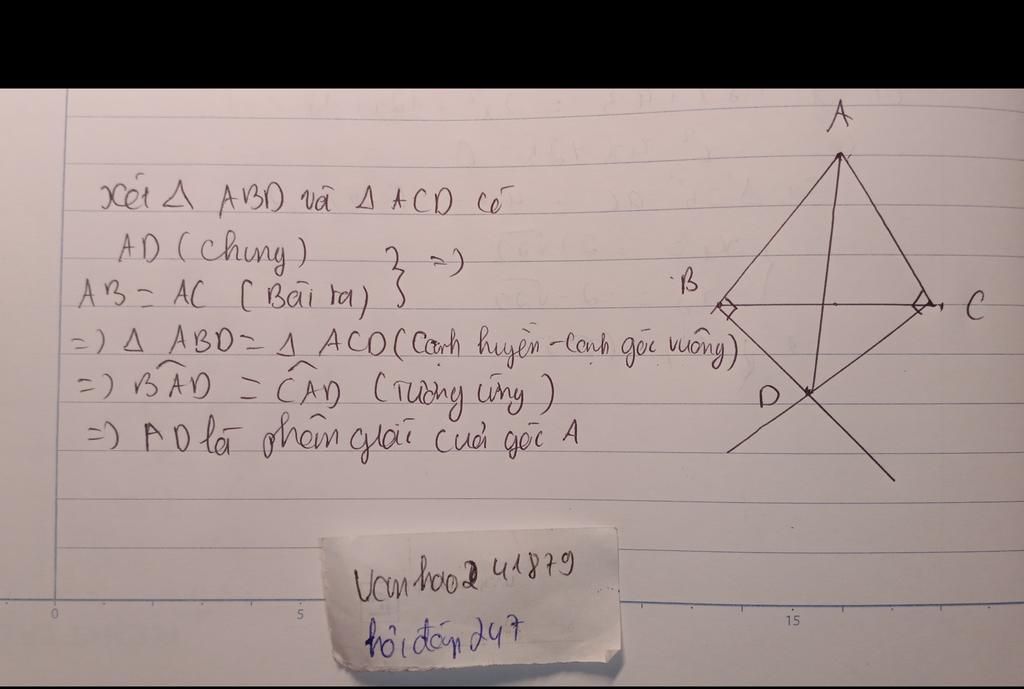 Xét Δ ABD và Δ ACD có
AD (chung)
AB = AC (Bài ra) } =>
=> Δ ABD = Δ ACD (Cạnh huyền - cạnh góc vuông)
=> BAD = CAD (Tương ứng)
=> AD là phân giác của góc A
A
B
C
D
vanhao241879
hỏi đáp 247
0
5
15